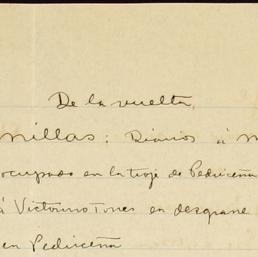 De la vuelta.
nillas: Diarios á m
ocupado en la troje de Pedriceña
á Victorino Torres en desgrane
en Pedriceña